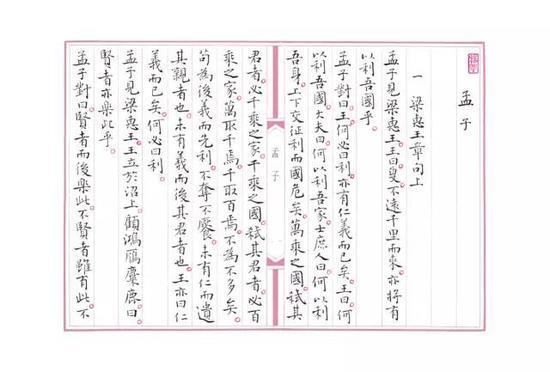 孟子
一 梁惠王章句上
孟子見梁惠王。王曰。叟不遠千里而來。亦將有
以利吾國乎。
孟子對曰。王何必曰利。亦有仁義而已矣。王曰。何
以利吾國。大夫曰。何以利吾家。士庶人曰。何以利
吾身。上下交征利而國危矣。萬乘之國。弒其
孟子
君者。必千乘之家。千乘之國。弒其君者。必百
乘之家。萬取千焉。千取百焉。不為不多矣。
苟為後義而先利。不奪不饜。未有仁而遺
其親者也。未有義而後其君者也。王亦曰仁
義而已矣。何必曰利。
孟子見梁惠王。王立於沼上。顧鴻鴈麋鹿。曰。
賢者亦樂此乎。
孟子對曰。賢者而後樂此。不賢者雖有此。不